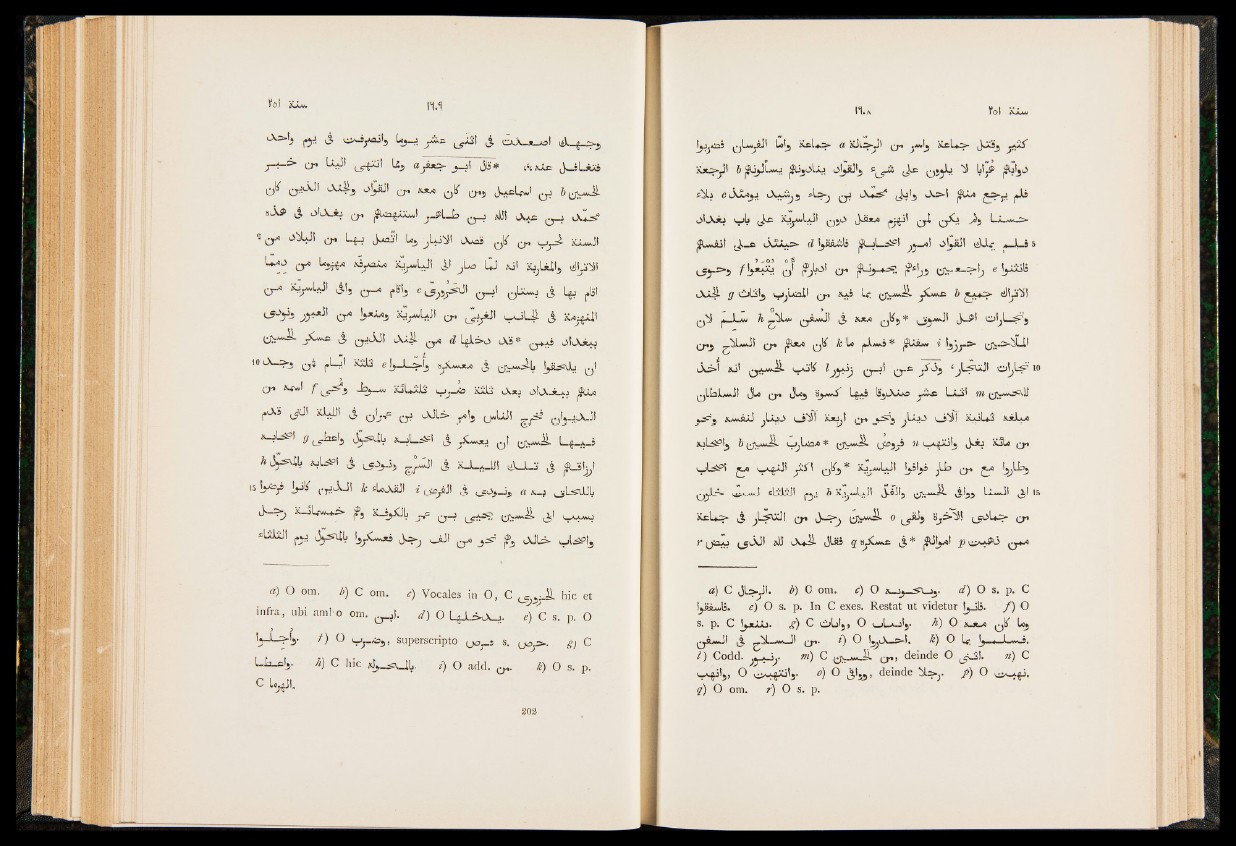 سنة ٢٥١ ١٦٠٨
كثير وقتل جماعة وأسر من الرجّالة a جماعة وأمّا الفرسان فضربوا
دوابّهم هُرّابًا لا يلوون على شىء والقوّاد ينادونهم يسألونهم b الرجعة
فلم يرجع منهم احد وابلى محمّد بن رجاء ورشيد يومئذ c بلاء
حسنا ولم يكن لمن انهزم معقل دون الياسريّة على باب بغداد
5 فلم يملك القوّاد امور اصحابهم فاشفقوا d حينئذ على انفسهم
فانثنوا e راجعين وراءهم يحمونهم من ادبارهم أن يُتْبَعوا f وحوى
الاتراك جميع b عسكر الحسين بما فيه من المضارب واثاث g الجند
وتجارات اهل السوق *وكان معه فى السفن سلاح h سلم لانّ
الملّاحين حرزوا i سفنهم *فسلم ما k كان معهم من السلاح ومن
10 تجارات التجّار، وذُكر عن ابن زنبور l كاتب الحسين انه أخذ
للحسين m اثنا عشر صندوقا فيها كسوة ومال من مال السلطان
مبلغه ثمانية آلاف دينار ونحو من اربعة آلاف دينار لنفسه ونحو
من مائة بغل وانتهب n فروض الحسين *مضارب الحسين b واصحابه
وطاروا مع من طار فوافوا الياسريّة *وكان اكثر النهب مع اصحاب
15 ابى السنا ووافى الحسين والفلّ الياسريّة b يوم الثلثاء لستّ خلون
من جمادى الآخرة ولقى o الحسين رجل من التجّار فى جماعة
ممن ذهبت p اموالهم *فى عسكره q فقال الحمد لله الذى بيّض r
a) C الرجال. b) C om. c) O d) O s. p. C
فاشفقوا. e) O s. p. In C exes. Restat ut videtur فانوا. f) O
s. p. C g) C واثبات, O h) O وما كان معه
من السلاح فى السفن. i) O احرزوا. k) O فسلموا ما.
l) Codd. زنبور. m) C من الحسين, deinde O اثنى. n) C
وانهب, O وانتهبت. o) O ووافى, deinde رجلا. p) O نهبت.
q) O om. r) O s. p.
سنة ٢٥١ ١٦٠٩
وجهك اصعدت فى اثنى عشر يوما وانصرفت فى يوم واحد
فتغافل عنه، *قال ابو جعفر a ولما انتهى الينا من خبر
الحسين b بن اسماعيل ومن كان معه من القوّاد والجند الذين كان
محمّد بن عبد الله بن طاهر استنهضهم من بغداد فى هذه
5 السنة لحرب من كان قصد الانبار وما اتّصل بها من البلاد من
الاتراك والمغاربة انه لمّا صار الى الياسريّة منصرفه مهزوما من دممّا
اقام بها فى بستان ابن الحرورى c واقام من وافى الياسريّة من
المنهزمة فى الجانب الغربى من الياسريّة ومنعوا من العبور ونودى
ببغداد فيمن *قد دخلها d من الجند الذين فى عسكر الحسين
10 ان يلحقوا بالحسين فى معسكره وأُجّلوا e ثلثة ايّام فمن وجد
منهم ببغداد بعد ثلثة ضرب ثلثمائة سوط ومُحى f اسمه من
الديوان فخرج الناس وامر خالد بن عمران فى الليلة التى قدم
فيها الحسين ان يعسكر فى اصحابه بالمحوّل واعطى g اصحابه
ارزاقهم فى تلك الليلة فى السرج ونودى فى اصحابه بالمحوّل h
15 باللحاق به a ونودى فى الفرض i القدماء k الذين كانوا فرضوا
بسبب ابى الحسين يحيى بن عمر بالكوفة وهم خمسمائة رجل
واصحاب خالد وهم نحو من الف رجل فعسكروا بالمحوّل يوم الثلثاء
a) O om. b) C om. c) Vocales in O, C الجزورى hic et
infra, ubi aml·o om. ابن. d) O يدخلها. e) C s. p. O
واجلوا. f) O وضرب, superscripto s. g) C
واعطا. h) C hic بالمحوله. i) O add. من. k) O s. p.
C
202